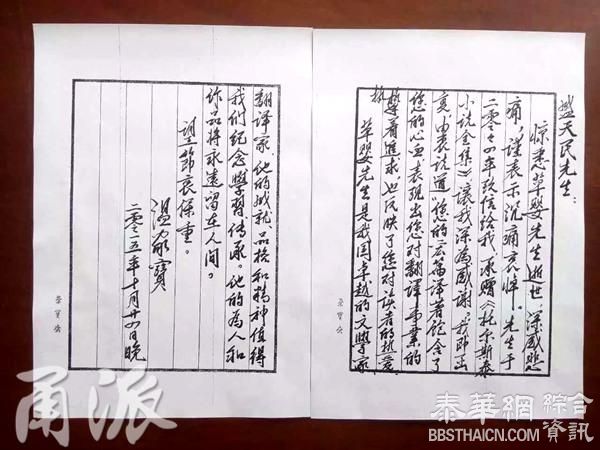 盛天民先生：
惊悉草婴先生逝世，深感悲
痛，谨表示沉痛哀悼。先生于
二零一四年致信给我，承赠《托尔斯泰
小说全集》，让我深为感谢。我即函
复由衷谈道：您的宏篇译著饱含了
您的心血，表现出您对翻译事业的
着追求，也反映了您对读者的热爱
草婴先生是我国卓越的文學家
榮寶齋
翻译家。他的成就、品格和精神值得
我们纪念學習传承。他的为人和
作品将永遠留在人间。
望節哀保重。
温家寶
二零一五年十月廿四日晚
榮寶齋
甬派
泰華網 綜合資訊
BBSTHAICN.COM